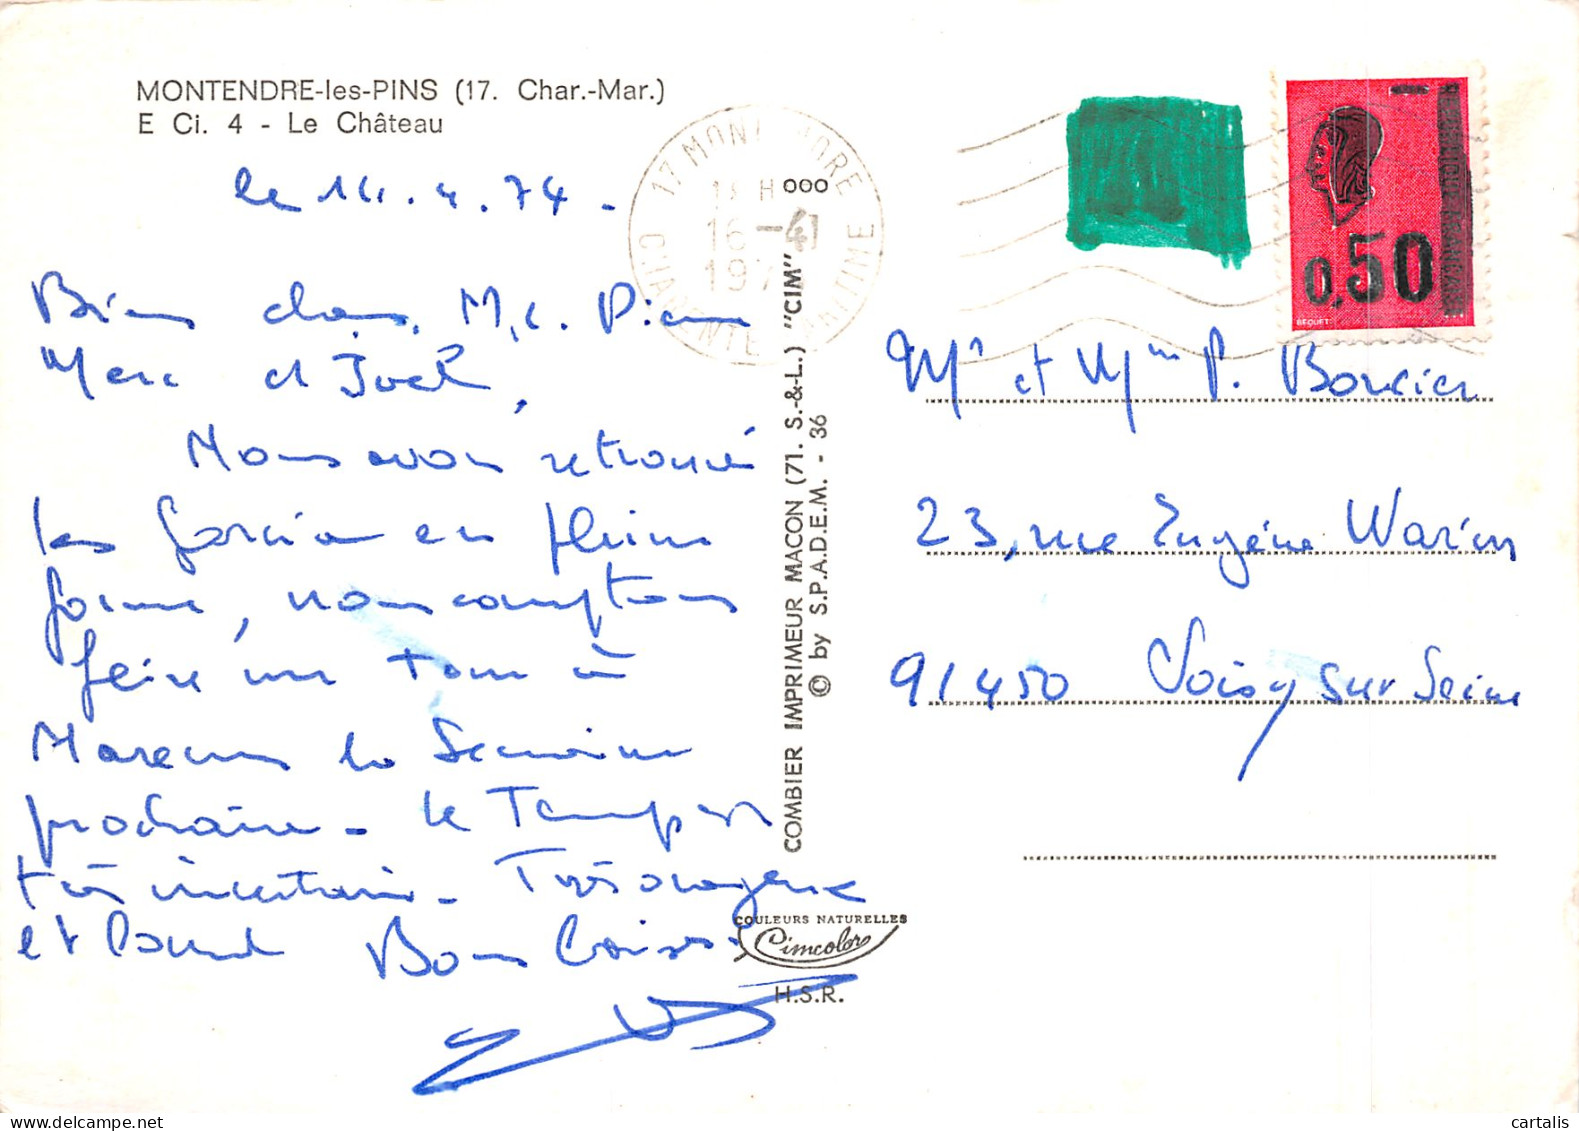 MONTENDRE-les-PINS (17. Char.-Mar.)
E Ci. 4 - Le Château
le 14.4.74.
Bien chers, M.C. Pierre
Marc et Joël,
Nous avons retrouvé
les Garcia en pleine
forme, nous comptons
faire un tour à
Marennes la Semaine
prochaine - le Temps est
très incertain - Très orageux
et lourd Bons Baisers.
17 MONT DRE
16 -4
197
CHARENTE MARITIME
000
COMBIER IMPRIMEUR MACON (71. S.-&-L.) "CIM"
© by S.P.A.D.E.M. - 36
COULEURS NATURELLES
Cimcolor
H.S.R.
REPUBLIQUE FRANCAISE
0,50
BEQUET
Mr et Mme P.
23, rue Eugène Warin
91450 Soisy sur Seine
cartalis
cartalis.delcampe.net